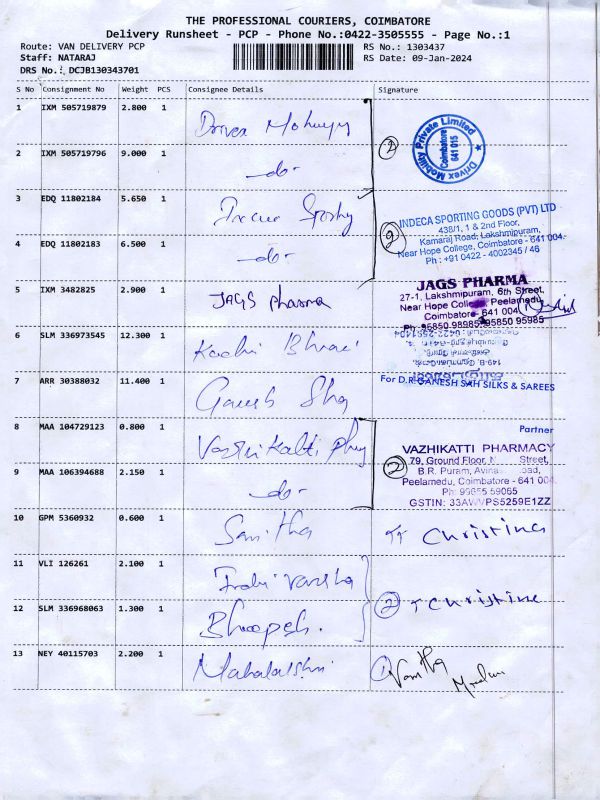 THE PROFESSIONAL COURIERS, COIMBATORE
Delivery Runsheet - PCP - Phone No.:0422-3505555 - Page No.:1
Route: VAN DELIVERY PCP RS No.: 1303437
Staff: NATARAJ RS Date: 09-Jan-2024
DRS No.: DCJB130343701
S No Consignment No Weight PCS Consignee Details Signature
1 IXM 505719879 2.800 1 Drivex Mobility
Drivex Mobility Private Limited
Coimbatore
641 015
2 IXM 505719796 9.000 1 -do- 2
3 EDQ 11802184 5.650 1
INDECA SPORTING GOODS (PVT) LTD
438/1, 1 & 2nd Floor,
Kamaraj Road, Lakshmipuram,
Near Hope College, Coimbatore - 641 004.
Ph : +91 0422 - 4002345 / 46
4 EDQ 11802183 6.500 1 -do- 2
5 IXM 3482825 2.900 1 JAGS pharma
JAGS PHARMA
27-1, Lakshmipuram, 6th Street,
Near Hope College, Peelamedu,
Coimbatore - 641 004
Ph : 95850 98985, 95850 95985
6 SLM 336973545 12.300 1
7 ARR 30388032 11.400 1 Ganesh Sha
For D.R.GANESH SAH SILKS & SAREES
Partner
8 MAA 104729123 0.800 1 Vazhikatti Phy
VAZHIKATTI PHARMACY
79, Ground Floor, Street,
B.R. Puram,
Peelamedu, Coimbatore - 641 004.
Ph: 99655 59065
GSTIN: 33AWVPS5259E1ZZ
9 MAA 106394688 2.150 1 -do- 2
10 GPM 5360932 0.600 1 Sanitha Christina
11 VLI 126261 2.100 1
12 SLM 336968063 1.300 1 Bhoopesh. 2 T Christine
13 NEY 40115703 2.200 1 Mahalakshmi 1